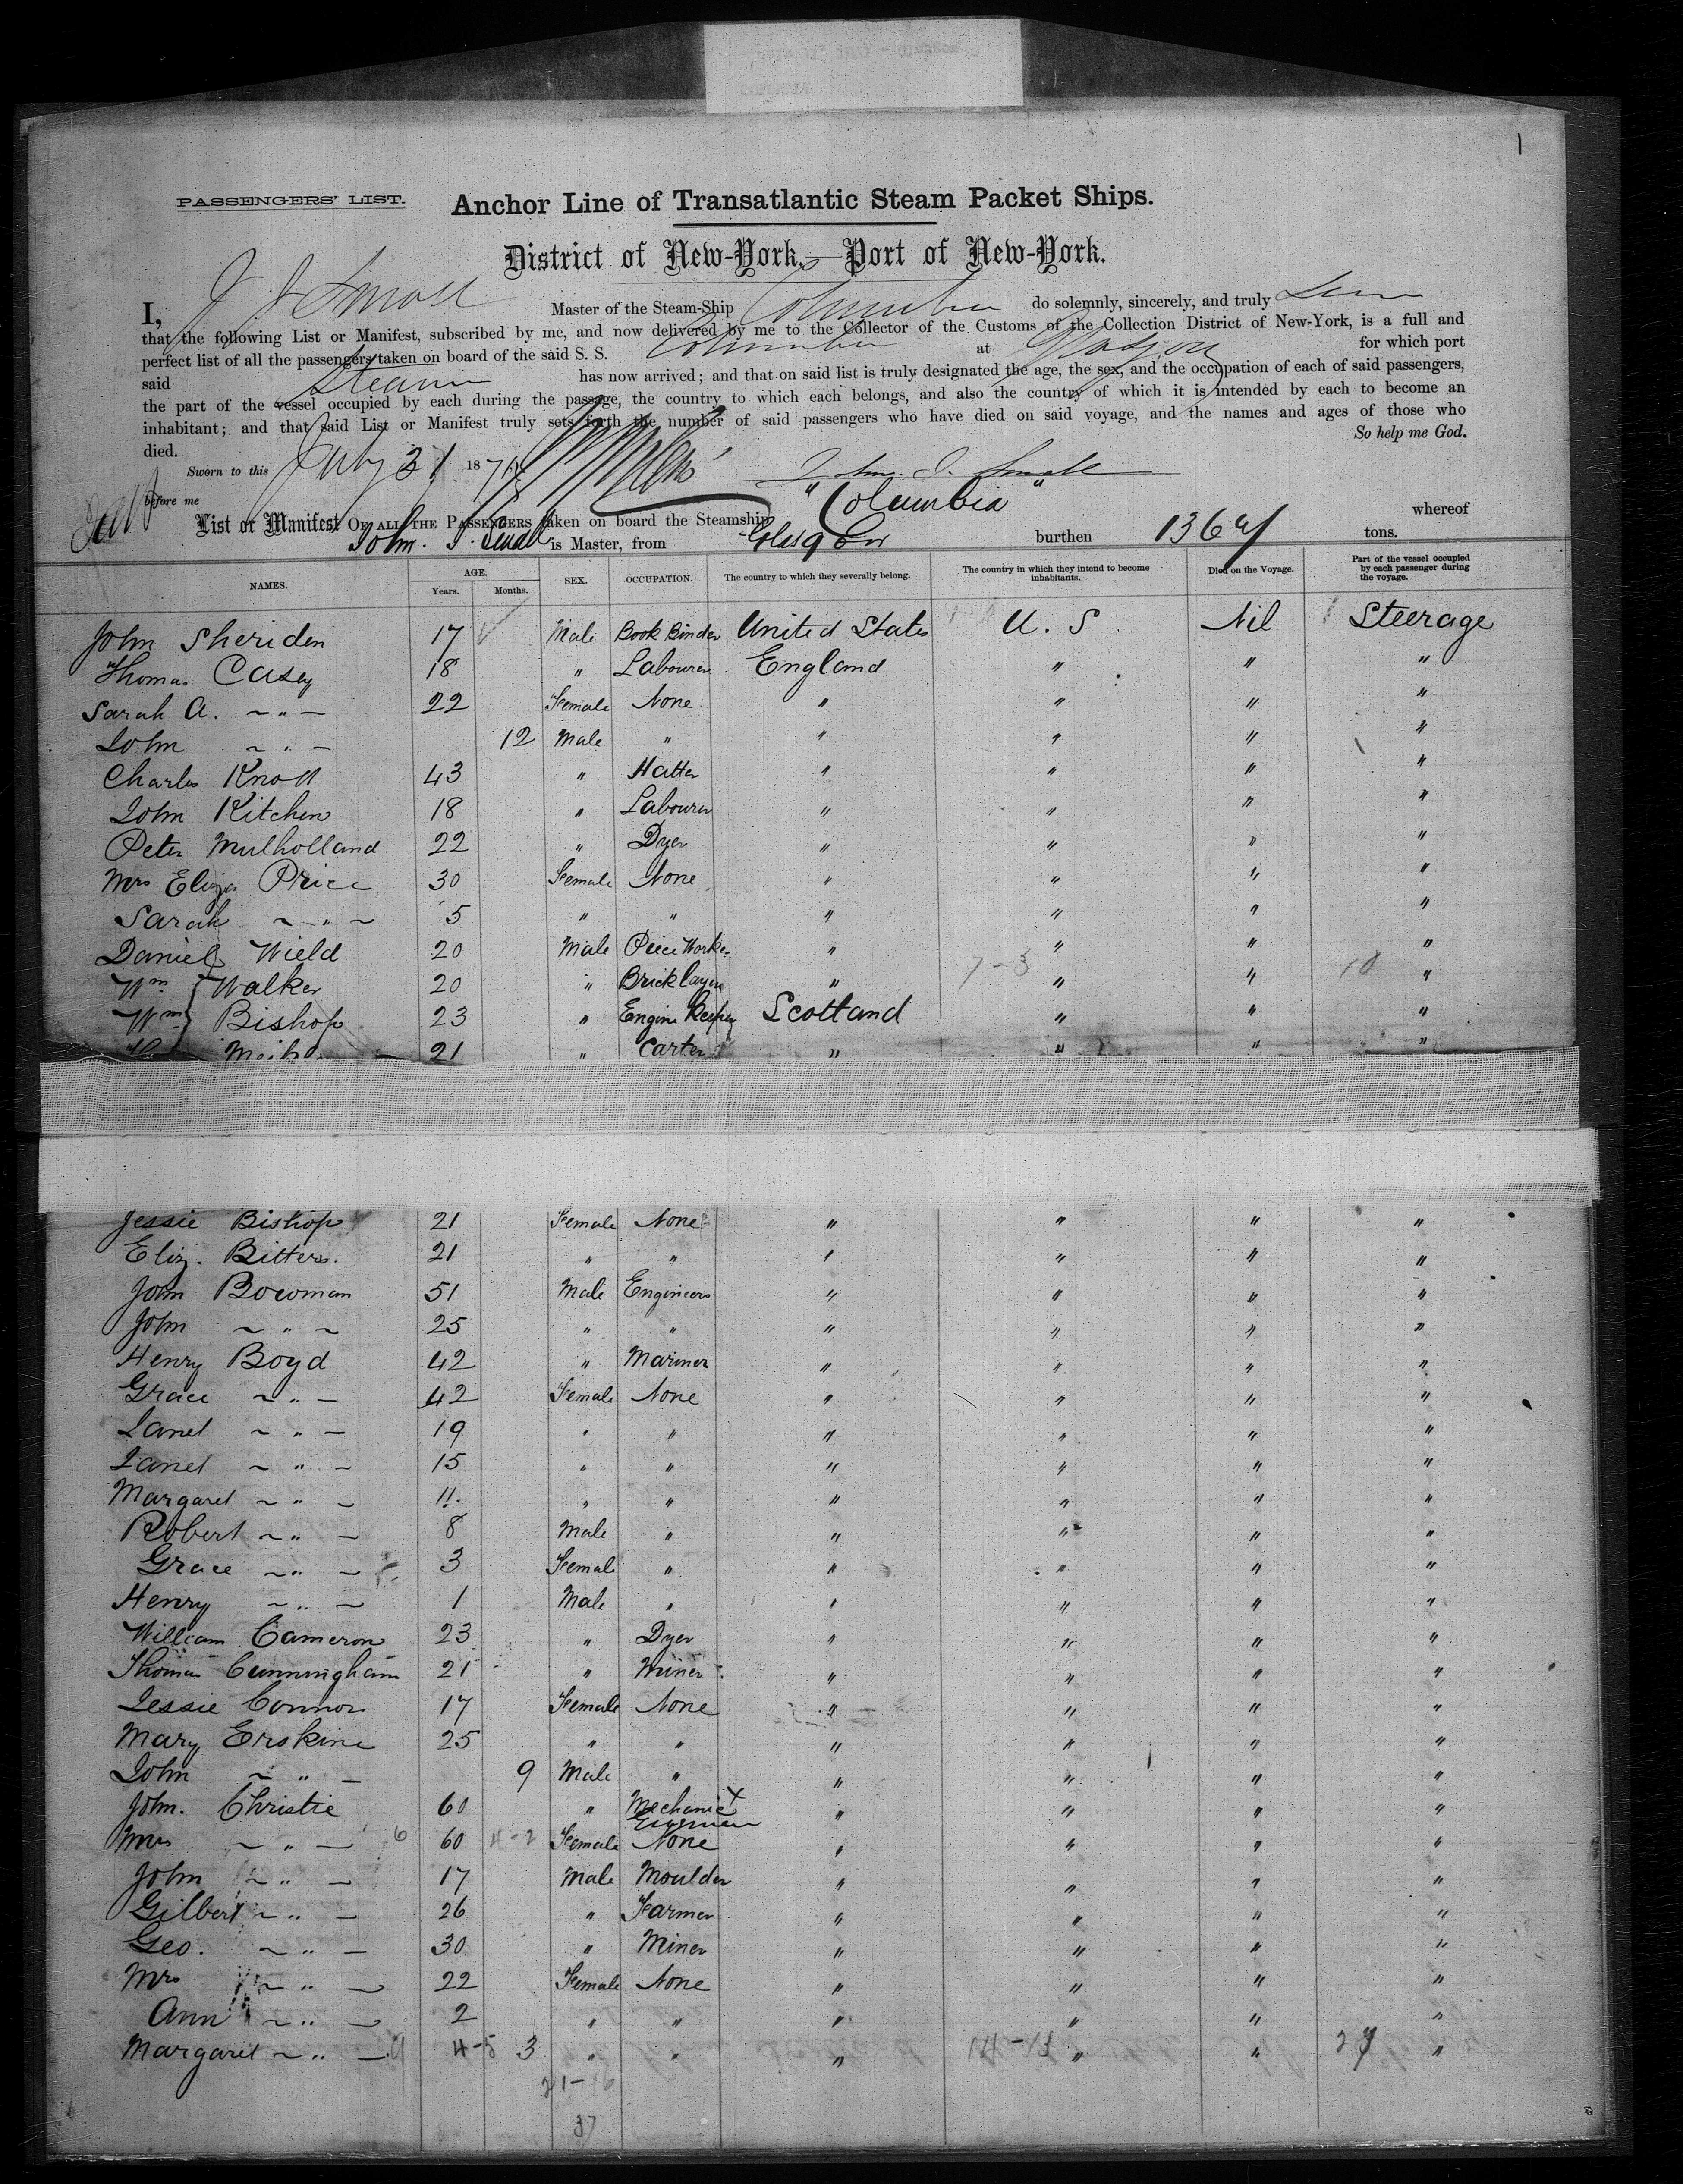 1
PASSENGERS' LIST. Anchor Line of Transatlantic Steam Packet Ships.
District of New-York, — Port of New-York.
I, J J Small Master of the Steam-Ship Columbia do solemnly, sincerely, and truly
that the following List or Manifest, subscribed by me, and now delivered by me to the Collector of the Customs of the Collection District of New-York, is a full and
perfect list of all the passengers taken on board of the said S. S. Columbia at Glasgow for which port
said Steamer has now arrived; and that on said list is truly designated the age, the sex, and the occupation of each of said passengers,
the part of the vessel occupied by each during the passage, the country to which each belongs, and also the country of which it is intended by each to become an
inhabitant; and that said List or Manifest truly sets forth the number of said passengers who have died on said voyage, and the names and ages of those who
died. So help me God.
Sworn to this July 31 187 John. J. Small
before me
List or Manifest OF ALL THE PASSENGERS taken on board the Steamship "Columbia" whereof
John. J. Small is Master, from Glasgow burthen tons.
NAMES. AGE. Years. Months. SEX. OCCUPATION. The country to which they severally belong. The country in which they intend to become inhabitants. Died on the Voyage. Part of the vessel occupied by each passenger during the voyage.
John Sheridan 17 Male Book Binder United States U. S Nil Steerage
Thomas Casey 18 " Labourer England " " "
Sarah A. ~ " — 22 Female None " " " "
John ~ " — 12 Male " " " " "
Charles Knott 43 " Hatter " " " "
John Kitchen 18 " Labourer " " " "
Peter Mulholland 22 " Dyer " " " "
Mrs Eliza Price 30 Female None " " " "
Sarah ~ " ~ 5 " " " " " "
Daniel Wield 20 Male Piece Worker " " " "
Wm Walker 20 " Bricklayer " 7-3 " " 10 "
Wm Bishop 23 " Engine Keeper Scotland " " "
21 " Carter " " " "
Jessie Bishop 21 Female None " " " "
Eliz. Bitters. 21 " " " " " "
John Bowman 51 Male Engineers " " " "
John ~ " ~ 25 " " " " " "
Henry Boyd 42 " Mariner " " " "
Grace ~ " — 42 Female None " " " "
Janet ~ " — 19 " " " " " "
Janet ~ " — 15 " " " " " "
Margaret ~ " — 11. " " " " " "
Robert ~ " — 8 Male " " " " "
Grace ~ " — 3 Female " " " " "
Henry ~ " — 1 Male " " " " "
William Cameron 23 " Dyer " " " "
Thomas Cunningham 21 " Miner " " " "
Jessie Connor 17 Female None " " " "
Mary Erskine 25 " " " " " "
John ~ " — 9 Male " " " " "
John. Christie 60 " Mechanic " " " "
Mrs ~ " — 6 60 4-2 Female None " " " "
John ~ " — 17 Male Moulder " " " "
Gilbert ~ " — 26 " Farmer " " " "
Geo. ~ " — 30 " Miner " " " "
Mrs ~ " — 22 Female None " " " "
Ann ~ " — 2 " " " " " "
Margaret ~ " — 4-5 3 " " " 14-13 " " "
21-16
37